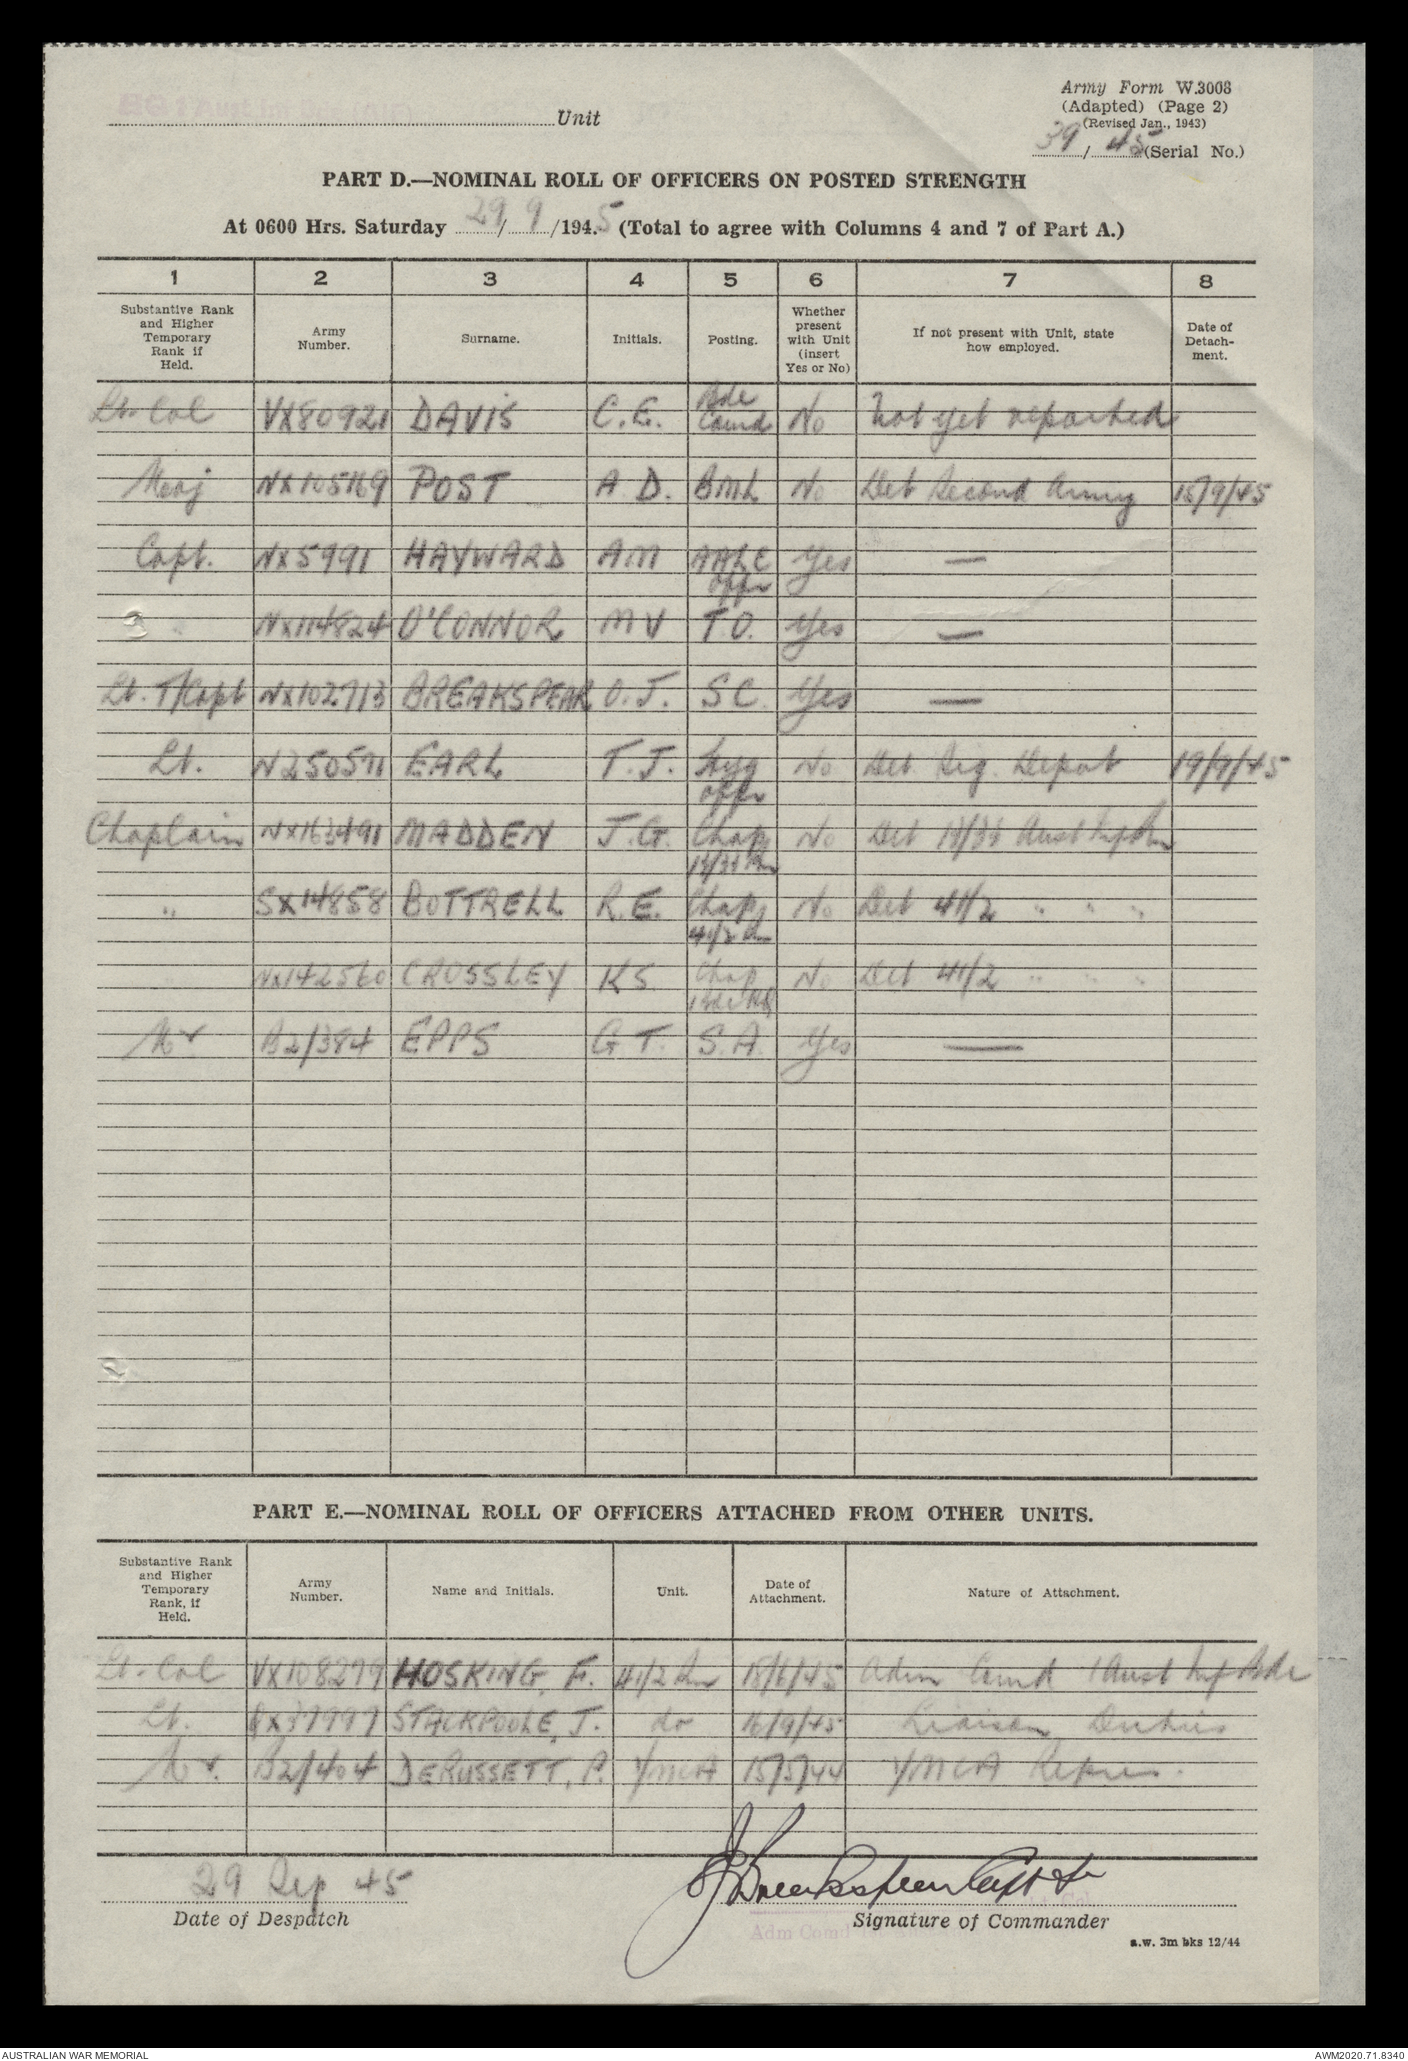 Army Form W.3008
(Adapted) (Page 2)
(Revised Jan., 1943)
Unit
39/45 (Serial No.)
PART D.—NOMINAL ROLL OF OFFICERS ON POSTED STRENGTH
At 0600 Hrs. Saturday 29/9/1945 (Total to agree with Columns 4 and 7 of Part A.)
1 2 3 4 5 6 7 8
Substantive Rank and Higher Temporary Rank if Held. Army Number. Surname. Initials. Posting. Whether present with Unit (insert Yes or No) If not present with Unit, state how employed. Date of Detach-ment.
Lt-Col VX80921 DAVIS C.E. Bde Comd No Not yet reported
Maj NX105169 POST A.D. BML No Det Second Army 15/9/45
Capt. NX5991 HAYWARD AM AALC Offr Yes —
" NX114824 O'CONNOR MV T.O. Yes —
Lt. T/Capt NX102713 BREAKSPEAR O.J. SC. Yes —
Lt. N250571 EARL T.J. Hyg offr No Det Sig. Depot 19/9/45
Chaplain NX163491 MADDEN J.G. Chap 13/33 Bn No Det 13/33 Aust Inf Bn
" SX14858 BOTTRELL R.E. Chap 41/2 Bn No Det 41/2 " " "
NX142560 CROSSLEY KS Chap No Det 41/2 " " "
Mr B2/384 EPPS G.T. S.A. Yes —
PART E.—NOMINAL ROLL OF OFFICERS ATTACHED FROM OTHER UNITS.
Substantive Rank and Higher Temporary Rank, if Held. Army Number. Name and Initials. Unit. Date of Attachment. Nature of Attachment.
Lt-Col VX108279 HOSKING, F. 41/2 Bn 18/6/45 Adm Comd 1 Aust Inf Bde
Lt. STACKPOOLE, J. do 16/9/45 Liaison Duties
Mr. B2/404 DERUSSETT, P. YMCA 15/5/44 YMCA Repres.
29 Sep 45
Date of Despatch
Signature of Commander
Adm Comd
a.w. 3m bks 12/44
AUSTRALIAN WAR MEMORIAL
AWM2020.71.8340